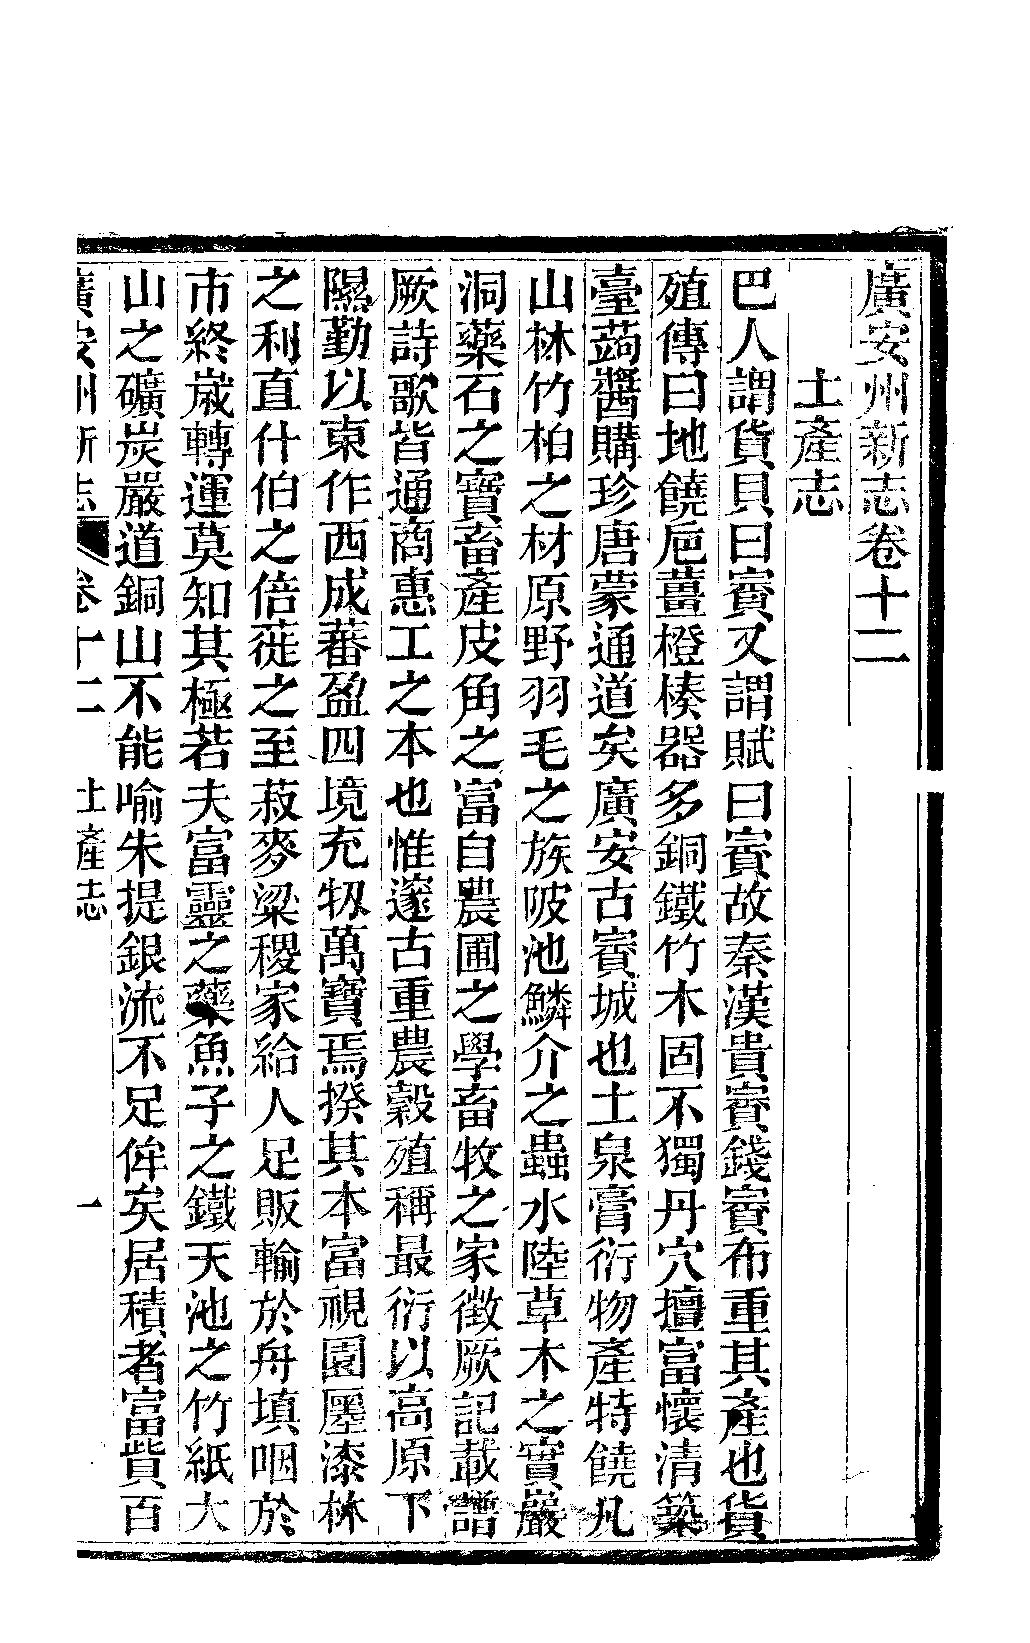 廣安州新志卷十二
土產志
巴人謂貨貝曰賨又謂賦曰賨故秦漢貴賨錢賨布重其產也貨
殖傳曰地饒巵薑橙楱器多銅鐵竹木固不獨丹穴擅富懷清築
臺蒟醬購珍唐蒙通道矣廣安古賨城也土泉膏衍物產特饒凡
山林竹柏之材原野羽毛之族陂池鱗介之蟲水陸草木之實巖
洞藥石之寶畜產皮角之富自農圃之學畜牧之家徴厥記載譜
厥詩歌皆通商惠工之本也惟邃古重農穀殖稱最衍以高原下
隰勤以東作西成蕃盈四境充牣萬寶焉揆其本富視園廛漆林
之利直什伯之倍蓰之至菽麥粱稷家給人足販輸於舟填咽於
市終歲轉運莫知其極若夫富靈之藥魚子之鐵天池之竹紙大
山之礦炭嚴道銅山不能喻朱提銀流不足侔矣居積者富貲百
廣安州新志 卷十二 土產志 一